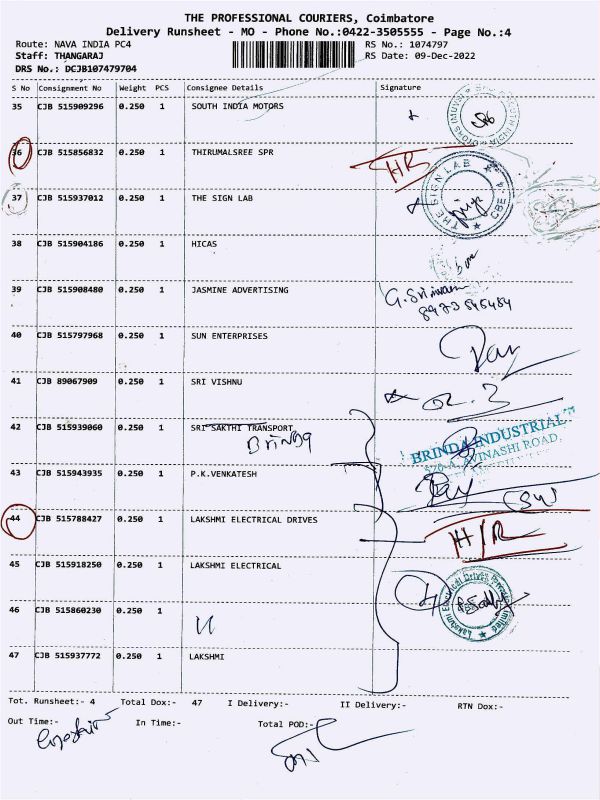 THE PROFESSIONAL COURIERS, Coimbatore
Delivery Runsheet - MO - Phone No.:0422-3505555 - Page No.:4
Route: NAVA INDIA PC4 RS No.: 1074797
Staff: THANGARAJ RS Date: 09-Dec-2022
DRS No.: DCJB107479704
S No Consignment No Weight PCS Consignee Details Signature
35 CJB 515909296 0.250 1 SOUTH INDIA MOTORS
36 CJB 515856832 0.250 1 THIRUMALSREE SPR
HR
37 CJB 515937012 0.250 1 THE SIGN LAB
THE SIGN LAB CBE
38 CJB 515904186 0.250 1 HICAS
39 CJB 515908480 0.250 1 JASMINE ADVERTISING
8973545484
40 CJB 515797968 0.250 1 SUN ENTERPRISES
41 CJB 89067909 0.250 1 SRI VISHNU
42 CJB 515939060 0.250 1 SRI SAKTHI TRANSPORT
BRINDA INDUSTRIAL
570-A, AVINASHI ROAD.
43 CJB 515943935 0.250 1 P.K.VENKATESH
44 CJB 515788427 0.250 1 LAKSHMI ELECTRICAL DRIVES
H/R
45 CJB 515918250 0.250 1 LAKSHMI ELECTRICAL
Lakshmi Electrical Drives Private Limited
46 CJB 515860230 0.250 1
47 CJB 515937772 0.250 1 LAKSHMI
Tot. Runsheet:- 4 Total Dox:- 47 I Delivery:- II Delivery:- RTN Dox:-
Out Time:- In Time:- Total POD:-